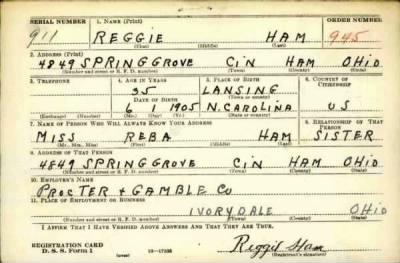 SERIAL NUMBER 1. NAME (Print) ORDER NUMBER
911 REGGIE HAM 945
(First) (Middle) (Last)
2. ADDRESS (Print)
4849 SPRING GROVE CIN HAM OHIO
(Number and street or R. F. D. number) (Town) (County) (State)
3. TELEPHONE 4. AGE IN YEARS 5. PLACE OF BIRTH 6. COUNTRY OF CITIZENSHIP
35 LANSING
DATE OF BIRTH (Town or county)
6 1905 N. CAROLINA US
(Exchange) (Number) (Mo.) (Day) (Yr.) (State or country)
7. NAME OF PERSON WHO WILL ALWAYS KNOW YOUR ADDRESS 8. RELATIONSHIP OF THAT PERSON
MISS REBA HAM SISTER
(Mr., Mrs., Miss) (First) (Middle) (Last)
9. ADDRESS OF THAT PERSON
4849 SPRING GROVE CIN HAM OHIO
(Number and street or R. F. D. number) (Town) (County) (State)
10. EMPLOYER'S NAME
PROCTER & GAMBLE CO
11. PLACE OF EMPLOYMENT OR BUSINESS
IVORYDALE OHIO
(Number and street or R. F. D. number) (Town) (County) (State)
I AFFIRM THAT I HAVE VERIFIED ABOVE ANSWERS AND THAT THEY ARE TRUE.
REGISTRATION CARD
D. S. S. FORM 1 (over) 16—17105 Reggie Ham
(Registrant's signature)